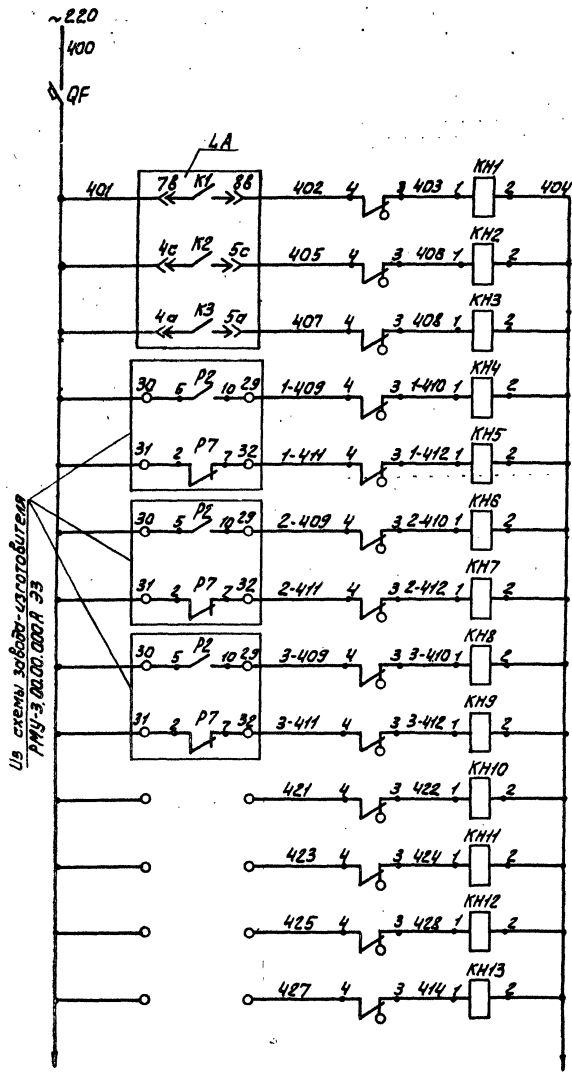 ~220
400
QF
4A
401 7в К1 8в 402 4 3 403 1 КН1 2 404
4с К2 5с 405 4 3 406 1 КН2 2
4а К3 5а 407 4 3 408 1 КН3 2
30 6 Р2 10 29 1-409 4 3 1-410 1 КН4 2
31 2 Р7 7 32 1-411 4 3 1-412 1 КН5 2
30 5 Р2 10 29 2-409 4 3 2-410 1 КН6 2
31 2 Р7 7 32 2-411 4 3 2-412 1 КН7 2
30 5 Р2 10 29 3-409 4 3 3-410 1 КН8 2
31 2 Р7 7 32 3-411 4 3 3-412 1 КН9 2
421 4 3 422 1 КН10 2
423 4 3 424 1 КН11 2
425 4 3 428 1 КН12 2
427 4 3 414 1 КН13 2
Из схемы завода-изготовителя
РМУ-3.00.00.000А Э3